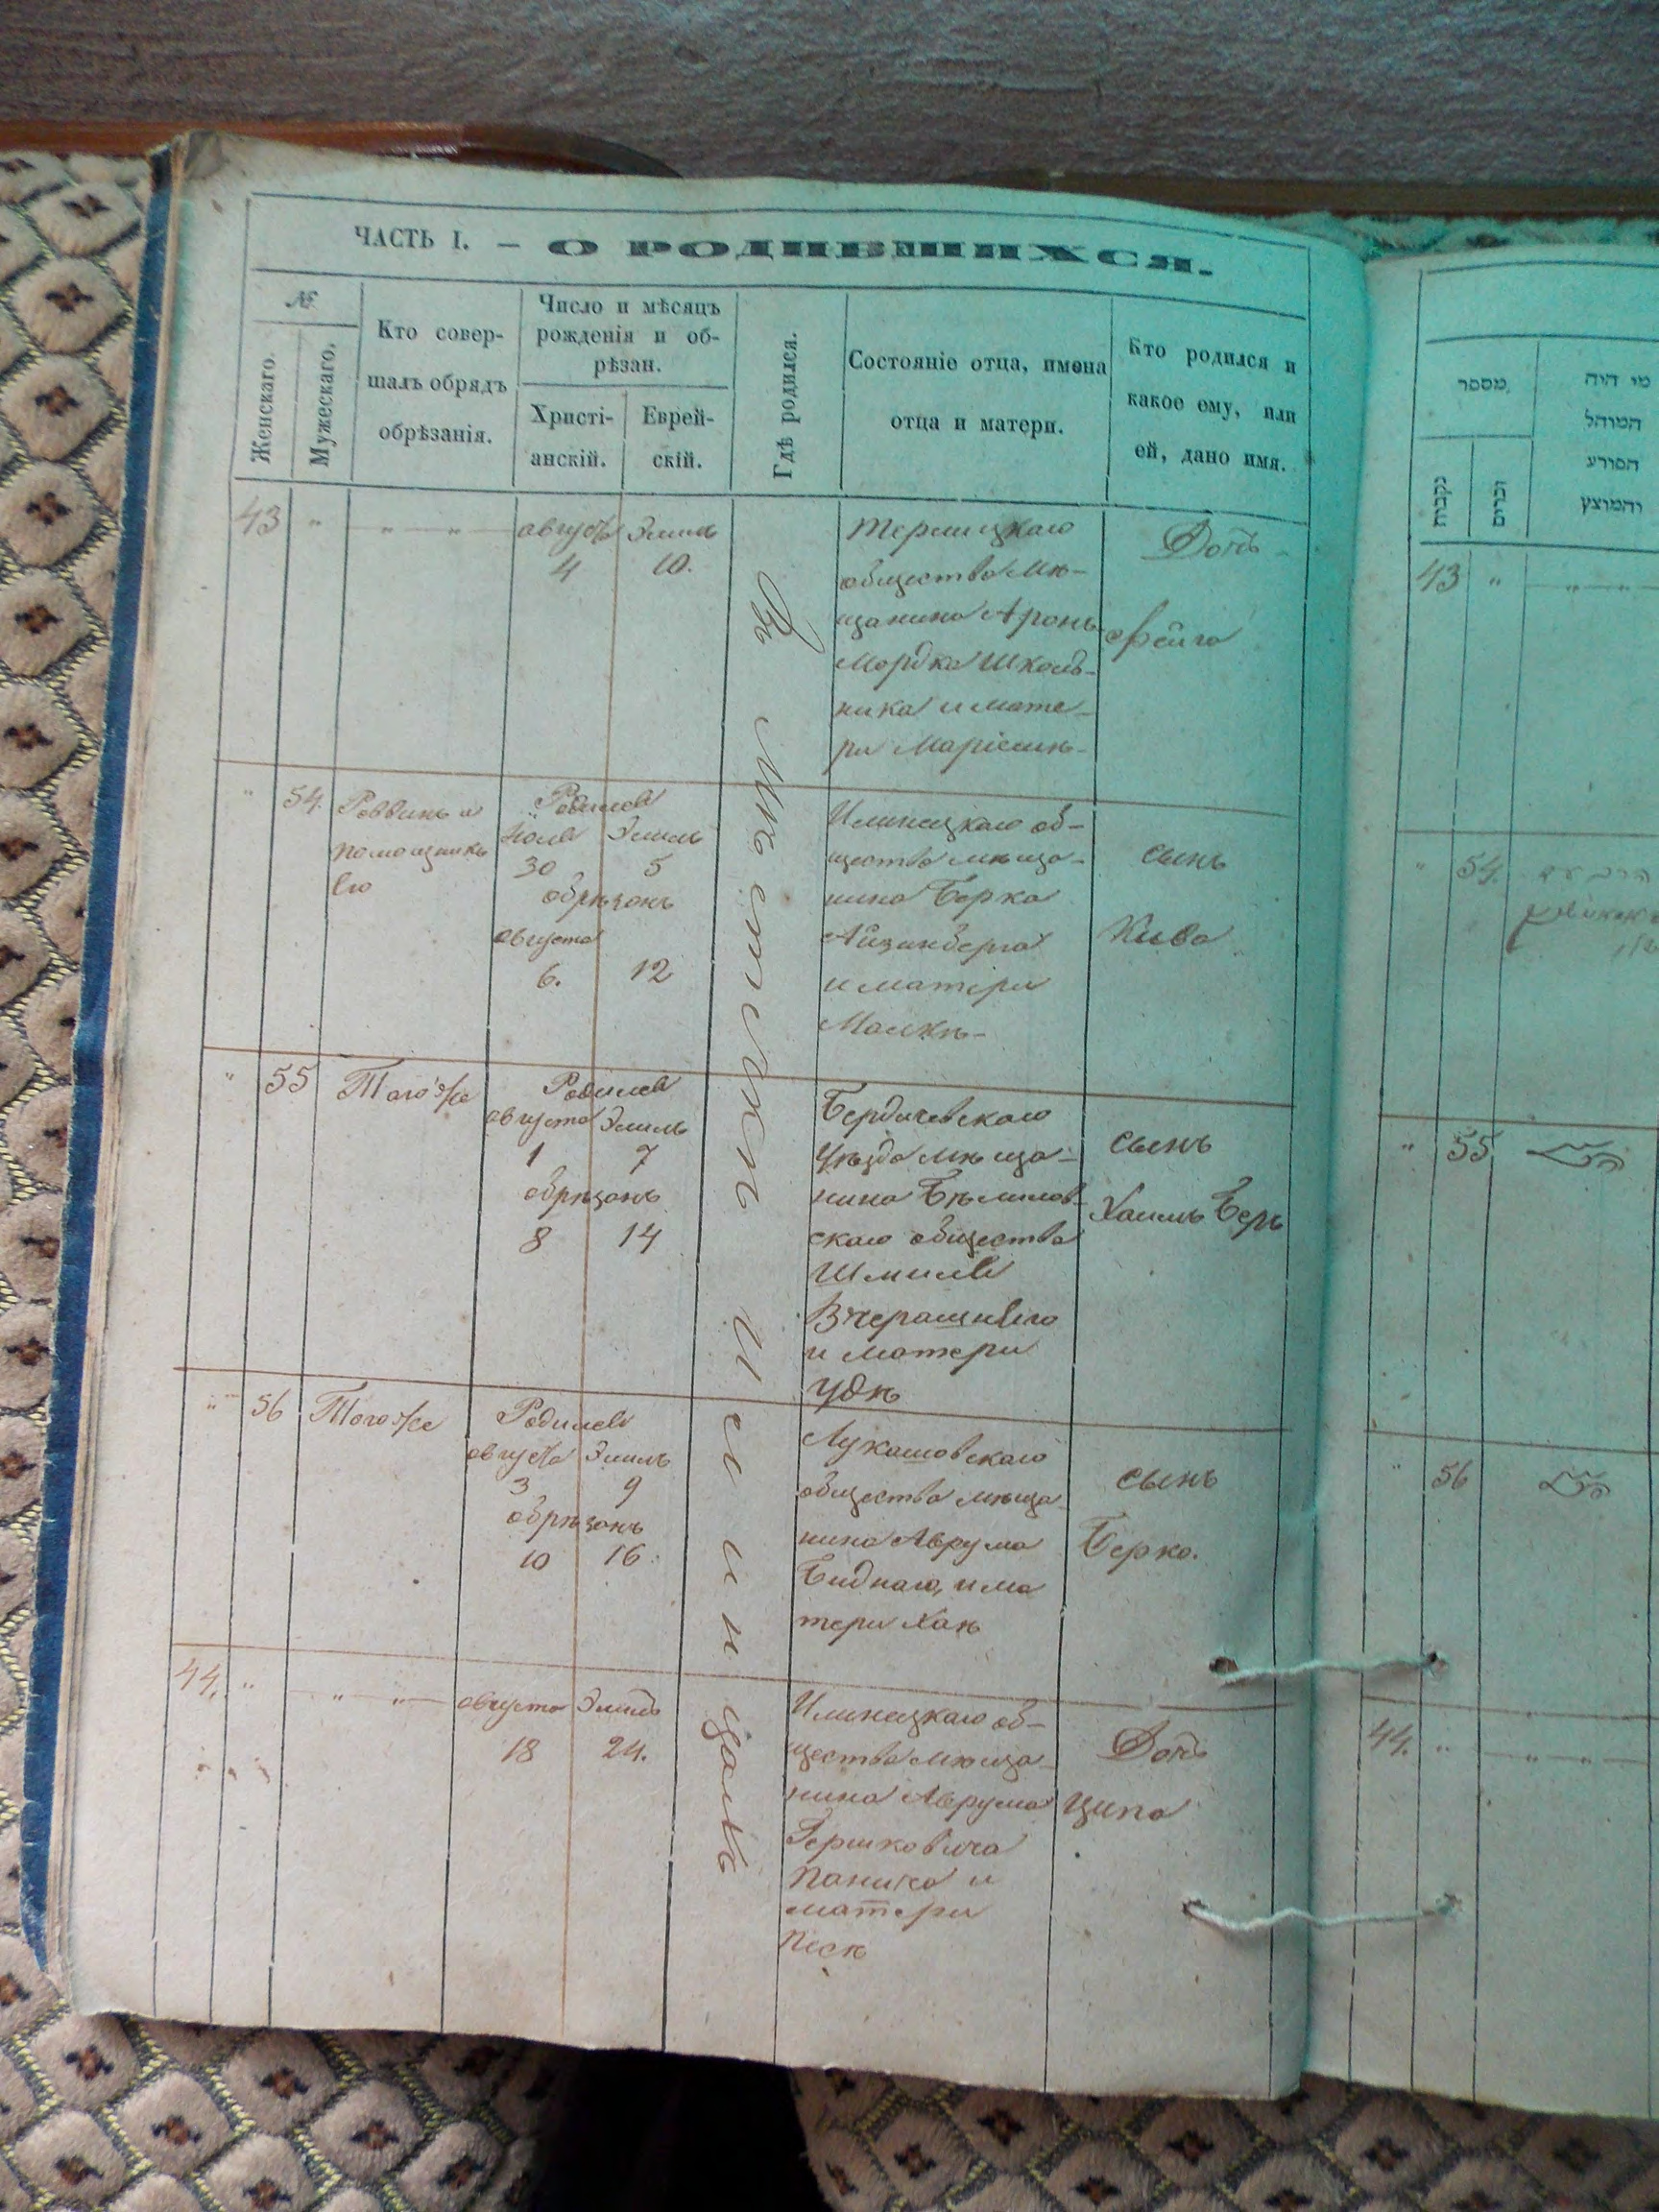 ЧАСТЬ I. — О РОДИВШИХСЯ.
№
Женскаго.
Мужескаго.
Кто совер-
шалъ обрядъ
обрѣзанія.
Число и мѣсяцъ
рожденія и об-
рѣзан.
Христі-
анскій.
Еврей-
скій.
Гдѣ родился.
Состояніе отца, имена
отца и матери.
Кто родился и
какое ему, или
ей, дано имя.
Въ Мѣстечкѣ Илинцахъ
43 " " — " —
августа Элиль
4 10.
общества мѣ-
щанина Аронъ
Мордка Школь-
ника и мате-
ри Маріемѣ
Дочь
Фейга
" 54.
Раввинъ и
помощникъ
его
Родился
Іюля Элиль
30 5
обрѣзанъ
августа
6. 12
Илинецкаго об-
щества мѣща-
нина Берка
Айзинберга
и матери
Малкѣ
сынъ
Кива
" 55 Того же
Родился
августа Элиль
1 7
обрѣзанъ
8 14
Бердичевскаго
уѣзда мѣща-
нина Бѣлилов-
скаго общества
Шмиля
Вчерашняго
и матери
Удѣ
сынъ
Хаимъ Беръ
" 56 Того же
Родился
августа Элиль
3 9
обрѣзанъ
10 16.
Лукашовскаго
общества мѣща-
нина Аврума
Биднаго, и ма
тери Ханѣ
сынъ
Берко.
44. " — " " —
августа Элиль
18 24.
Илинецкаго об-
щества мѣща-
нина Аврума
Гершковича
Паника и
матери
Песѣ
Дочь
Ципа
מספר.
נקבות
זכרים
מי היה
המוהל
הפורע
והמוצץ
43 "
" 54.
" 55
" 56
44. "